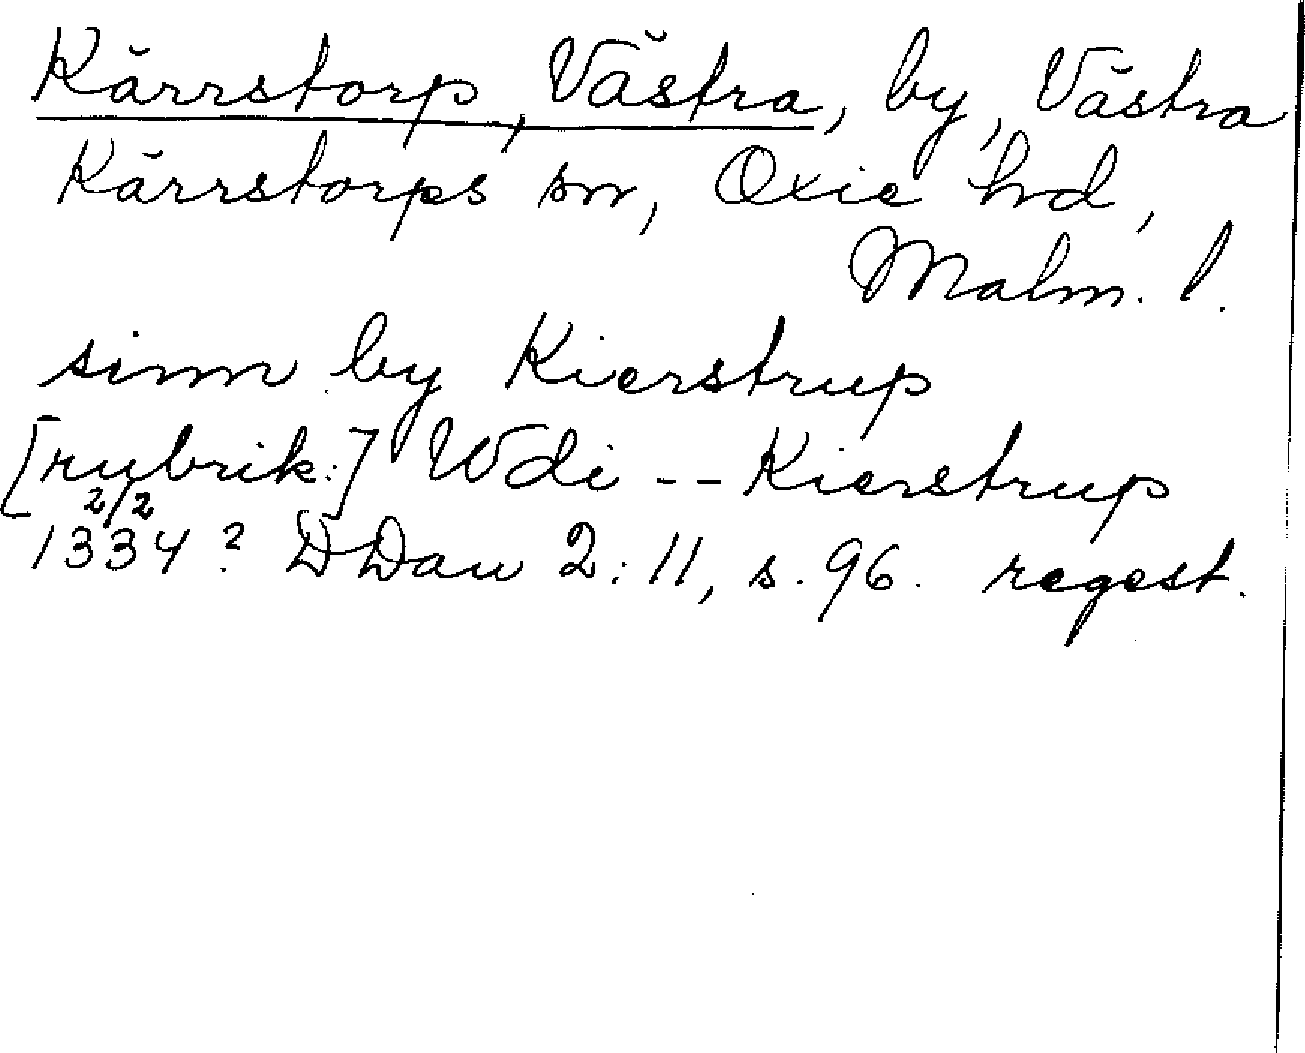 Kärrstorp, Västra, by, Västra
Kärrstorps sn, Oxie hd,
Malm. l.
sinn by Kierstrup
[rubrik:] Wdi -- Kierstrup
2/2
1334? DDan 2:11, s. 96. regest.